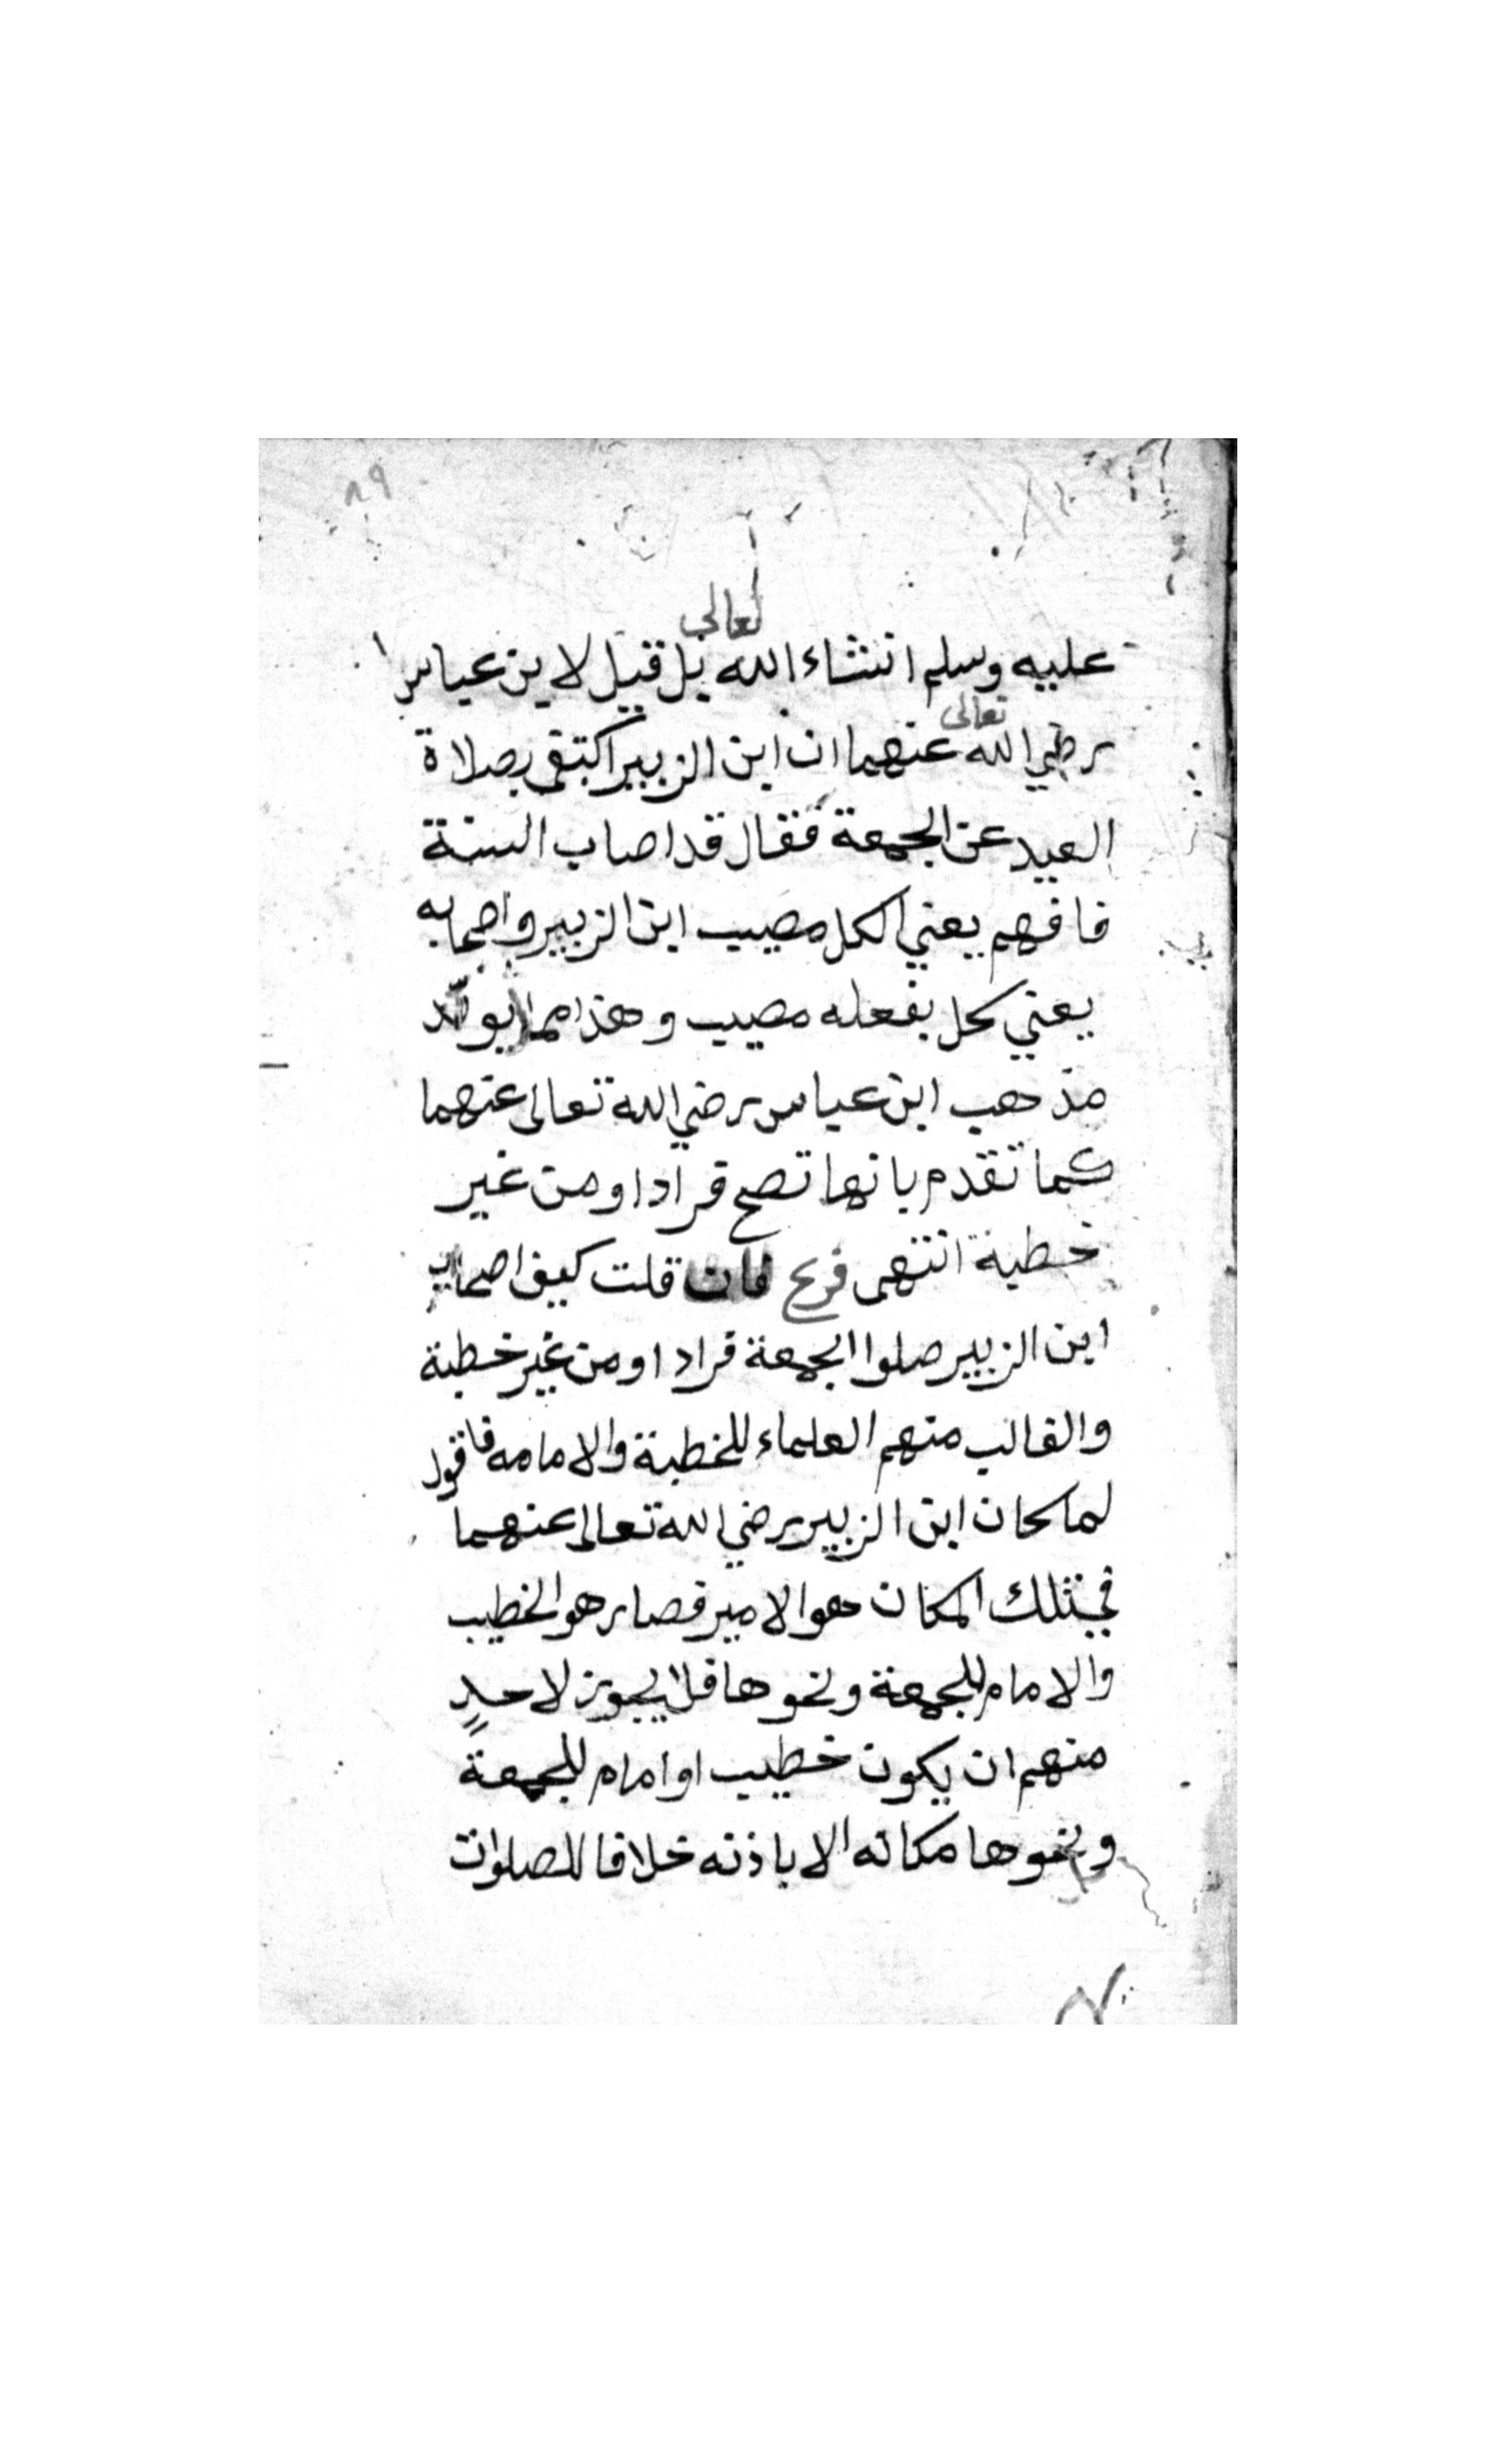 ٨٩
تعالى
عليه وسلم انشاء الله بل قيل لابن عباس
تعالى
رضي الله عنهما ان ابن الزبير اكتفى بصلاة
العيد عن الجمعة فقال قد اصاب السنة
فافهم يعني الكل مصيب ابن الزبير واصحابه
يعني كل بفعله مصيب وهذا مما يولد
مذهب ابن عباس رضي الله تعالى عنهما
كما تقدم بانها تصح فرادا ومن غير
خطبة انتهى فرع فان قلت كيف اصحاب
ابن الزبير صلوا الجمعة فرادا ومن غير خطبة
والغالب منهم العلماء للخطبة والامامه فاقول
لما كان ابن الزبير رضي الله تعالى عنهما
في تلك المكان هو الامير فصار هو الخطيب
والامام للجمعة ونحوها فلا يجوز لاحدٍ
منهم ان يكون خطيب او امام للجمعة
ونحوها مكانه الا باذنه خلافا للصلوات